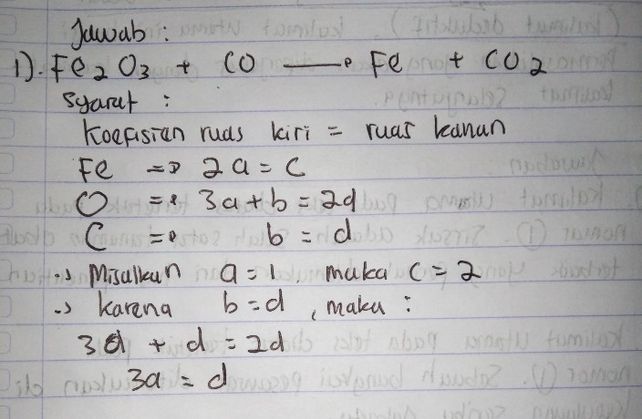 Jawab :
1). Fe2O3 + CO → Fe + CO2
Syarat :
Koefisien ruas kiri = ruas kanan
Fe => 2a = c
O => 3a + b = 2d
C => b = d
-> Misalkan a = 1, maka c = 2
-> karena b = d, maka :
3a + d = 2d
3a = d